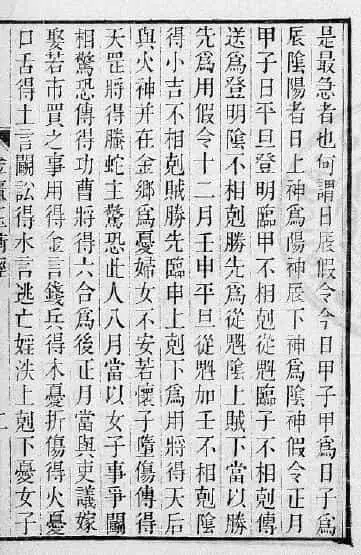 是最急者也何謂日辰假令今日甲子甲爲日子爲
辰陰陽者日上神爲陽神辰下神爲陰神假令正月
甲子日平旦登明臨甲不相剋從魁臨子不相剋傳
送爲登明陰不相剋勝先爲從魁陰上賊下當以勝
先爲用假令十二月壬申平旦從魁加壬不相剋陰
得小吉不相剋賊勝先臨申上剋下爲用將得天后
與火神并在金鄉爲憂婦女不安若懷子墮傷傳得
天罡將得螣蛇主驚恐此人八月當以女子事爭鬭
相驚恐傳得功曹將得六合爲後正月當與吏議嫁
娶若市買之事用得金言錢兵得木憂折傷得火憂
口舌得土言鬭訟得水言逃亡婬泆上剋下憂女子